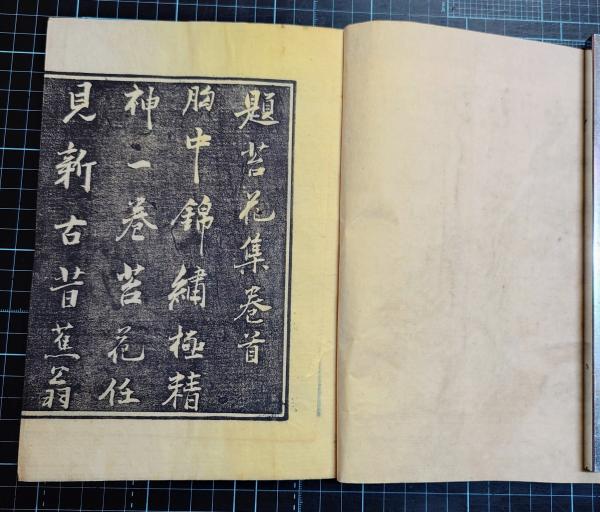 題苔花集卷首
胸中錦繡極精
神一卷苔花任
見新古昔蕉翁